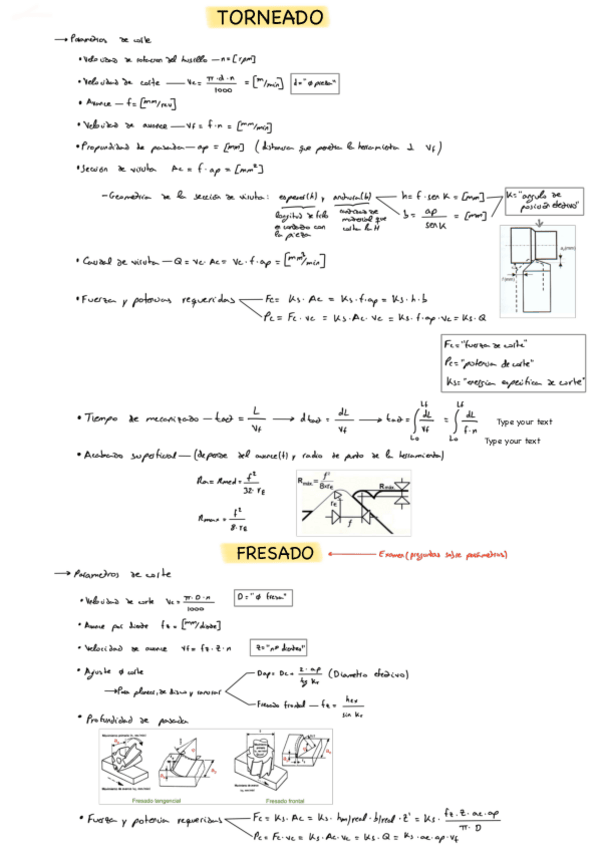 TORNEADO
→ Parámetros de corte
• Velocidad de rotacion del husillo — n = [rpm]
• Velocidad de corte — Vc = π·d·n / 1000 = [m/min] d = "ø pieza"
• Avance — f = [mm/rev]
• Velocidad de avance — Vf = f·n = [mm/min]
• Profundidad de pasada — ap = [mm] (distancia que penetra la herramienta ⊥ Vf)
• Sección de viruta Ac = f·ap = [mm²]
– Geometria de la sección de viruta: espesor(h) y anchura(b)
h = f·sen K = [mm]
b = ap / sen K = [mm]
K = "angulo de posición efectivo"
longitud de filo en contacto con la pieza
material que corta la H
• Caudal de viruta — Q = Vc·Ac = Vc·f·ap = [mm³/min]
• Fuerza y potencias requeridas
Fc = Ks·Ac = Ks·f·ap = Ks·h·b
Pc = Fc·Vc = Ks·Ac·Vc = Ks·f·ap·Vc = Ks·Q
Fc = "fuerza de corte"
Pc = "potencia de corte"
Ks = "energía específica de corte"
• Tiempo de mecanizado — = L / Vf → = dL / Vf → = ∫ dL / Vf = ∫ dL / f·n
Type your text
Type your text
• Acabado superficial — (depende del avance(f) y radio de punta de la herramienta)
Ra = Rmed = f² / 32·rE
Rmax = f² / 8·rE
Rmáx = f² / 8·rE
Rmáx
rE
f
FRESADO
← Examen (preguntas sobre parámetros)
→ Parametros de corte
• Velocidad de corte Vc = π·D·n / 1000 D = "ø fresa"
• Avance por diente fz = [mm/diente]
• Velocidad de avance Vf = fz·Z·n Z = "nº dientes"
• Ajuste ø corte
→ Para planear, de disco y ranurar
Dap = Dc = 2·ap / tg Kr (Diametro efectivo)
Fresado frontal — fz = hex / sin Kr
• Profundidad de pasada
Fresado tangencial
Fresado frontal
• Fuerza y potencia requeridas
Fc = Ks·Ac = Ks·hm/real·b/real·z' = Ks· fz·Z·ae·ap / π·D
Pc = Fc·Vc = Ks·Ac·Vc = Ks·Q = Ks·ae·ap·Vf